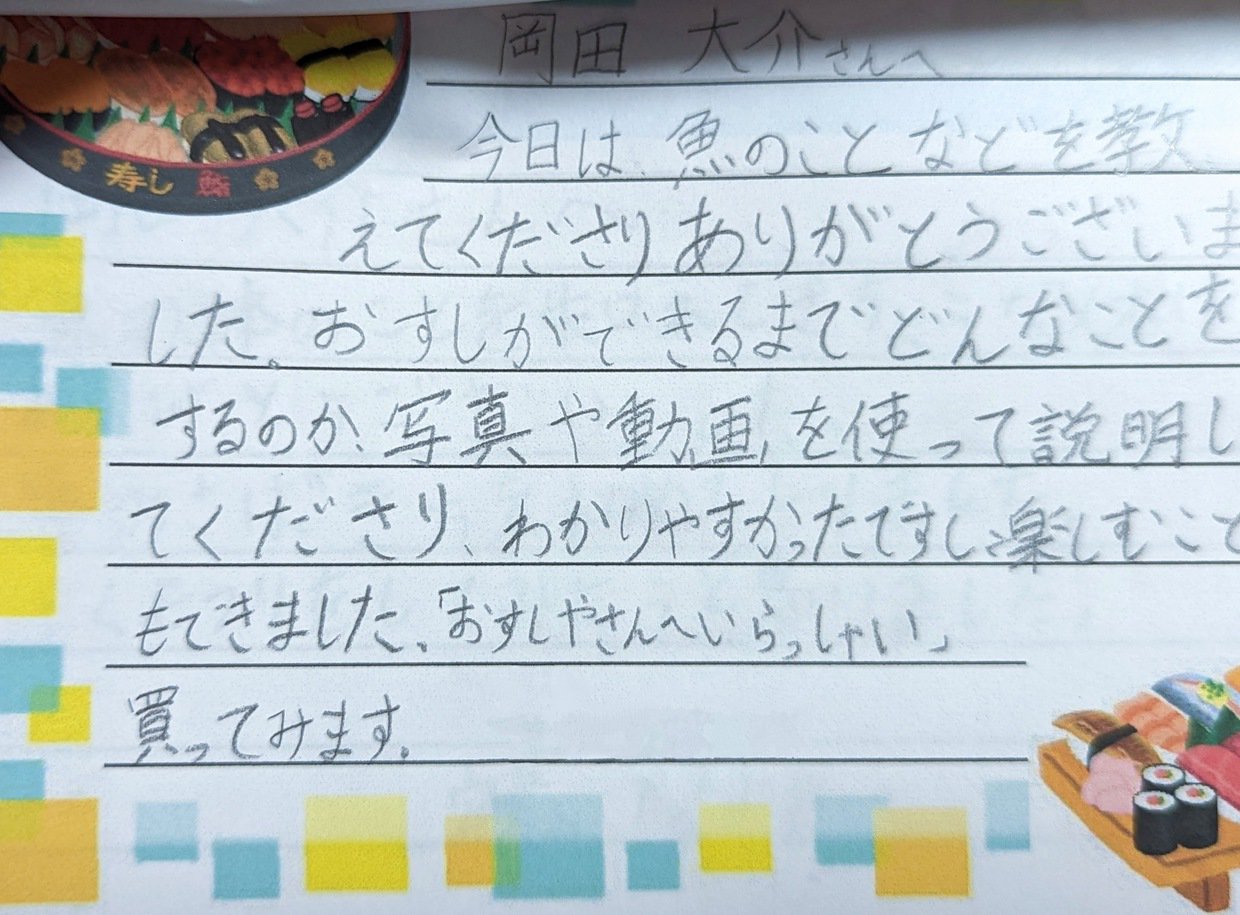 寿し 鮨
岡田 大介さんへ
今日は、魚のことなどを教
えてくださりありがとうございま
した。おすしができるまでどんなことを
するのか、写真や動画を使って説明し
てくださり、わかりやすかったですし、楽しむこと
もできました。「おすしやさんへいらっしゃい」
買ってみます。